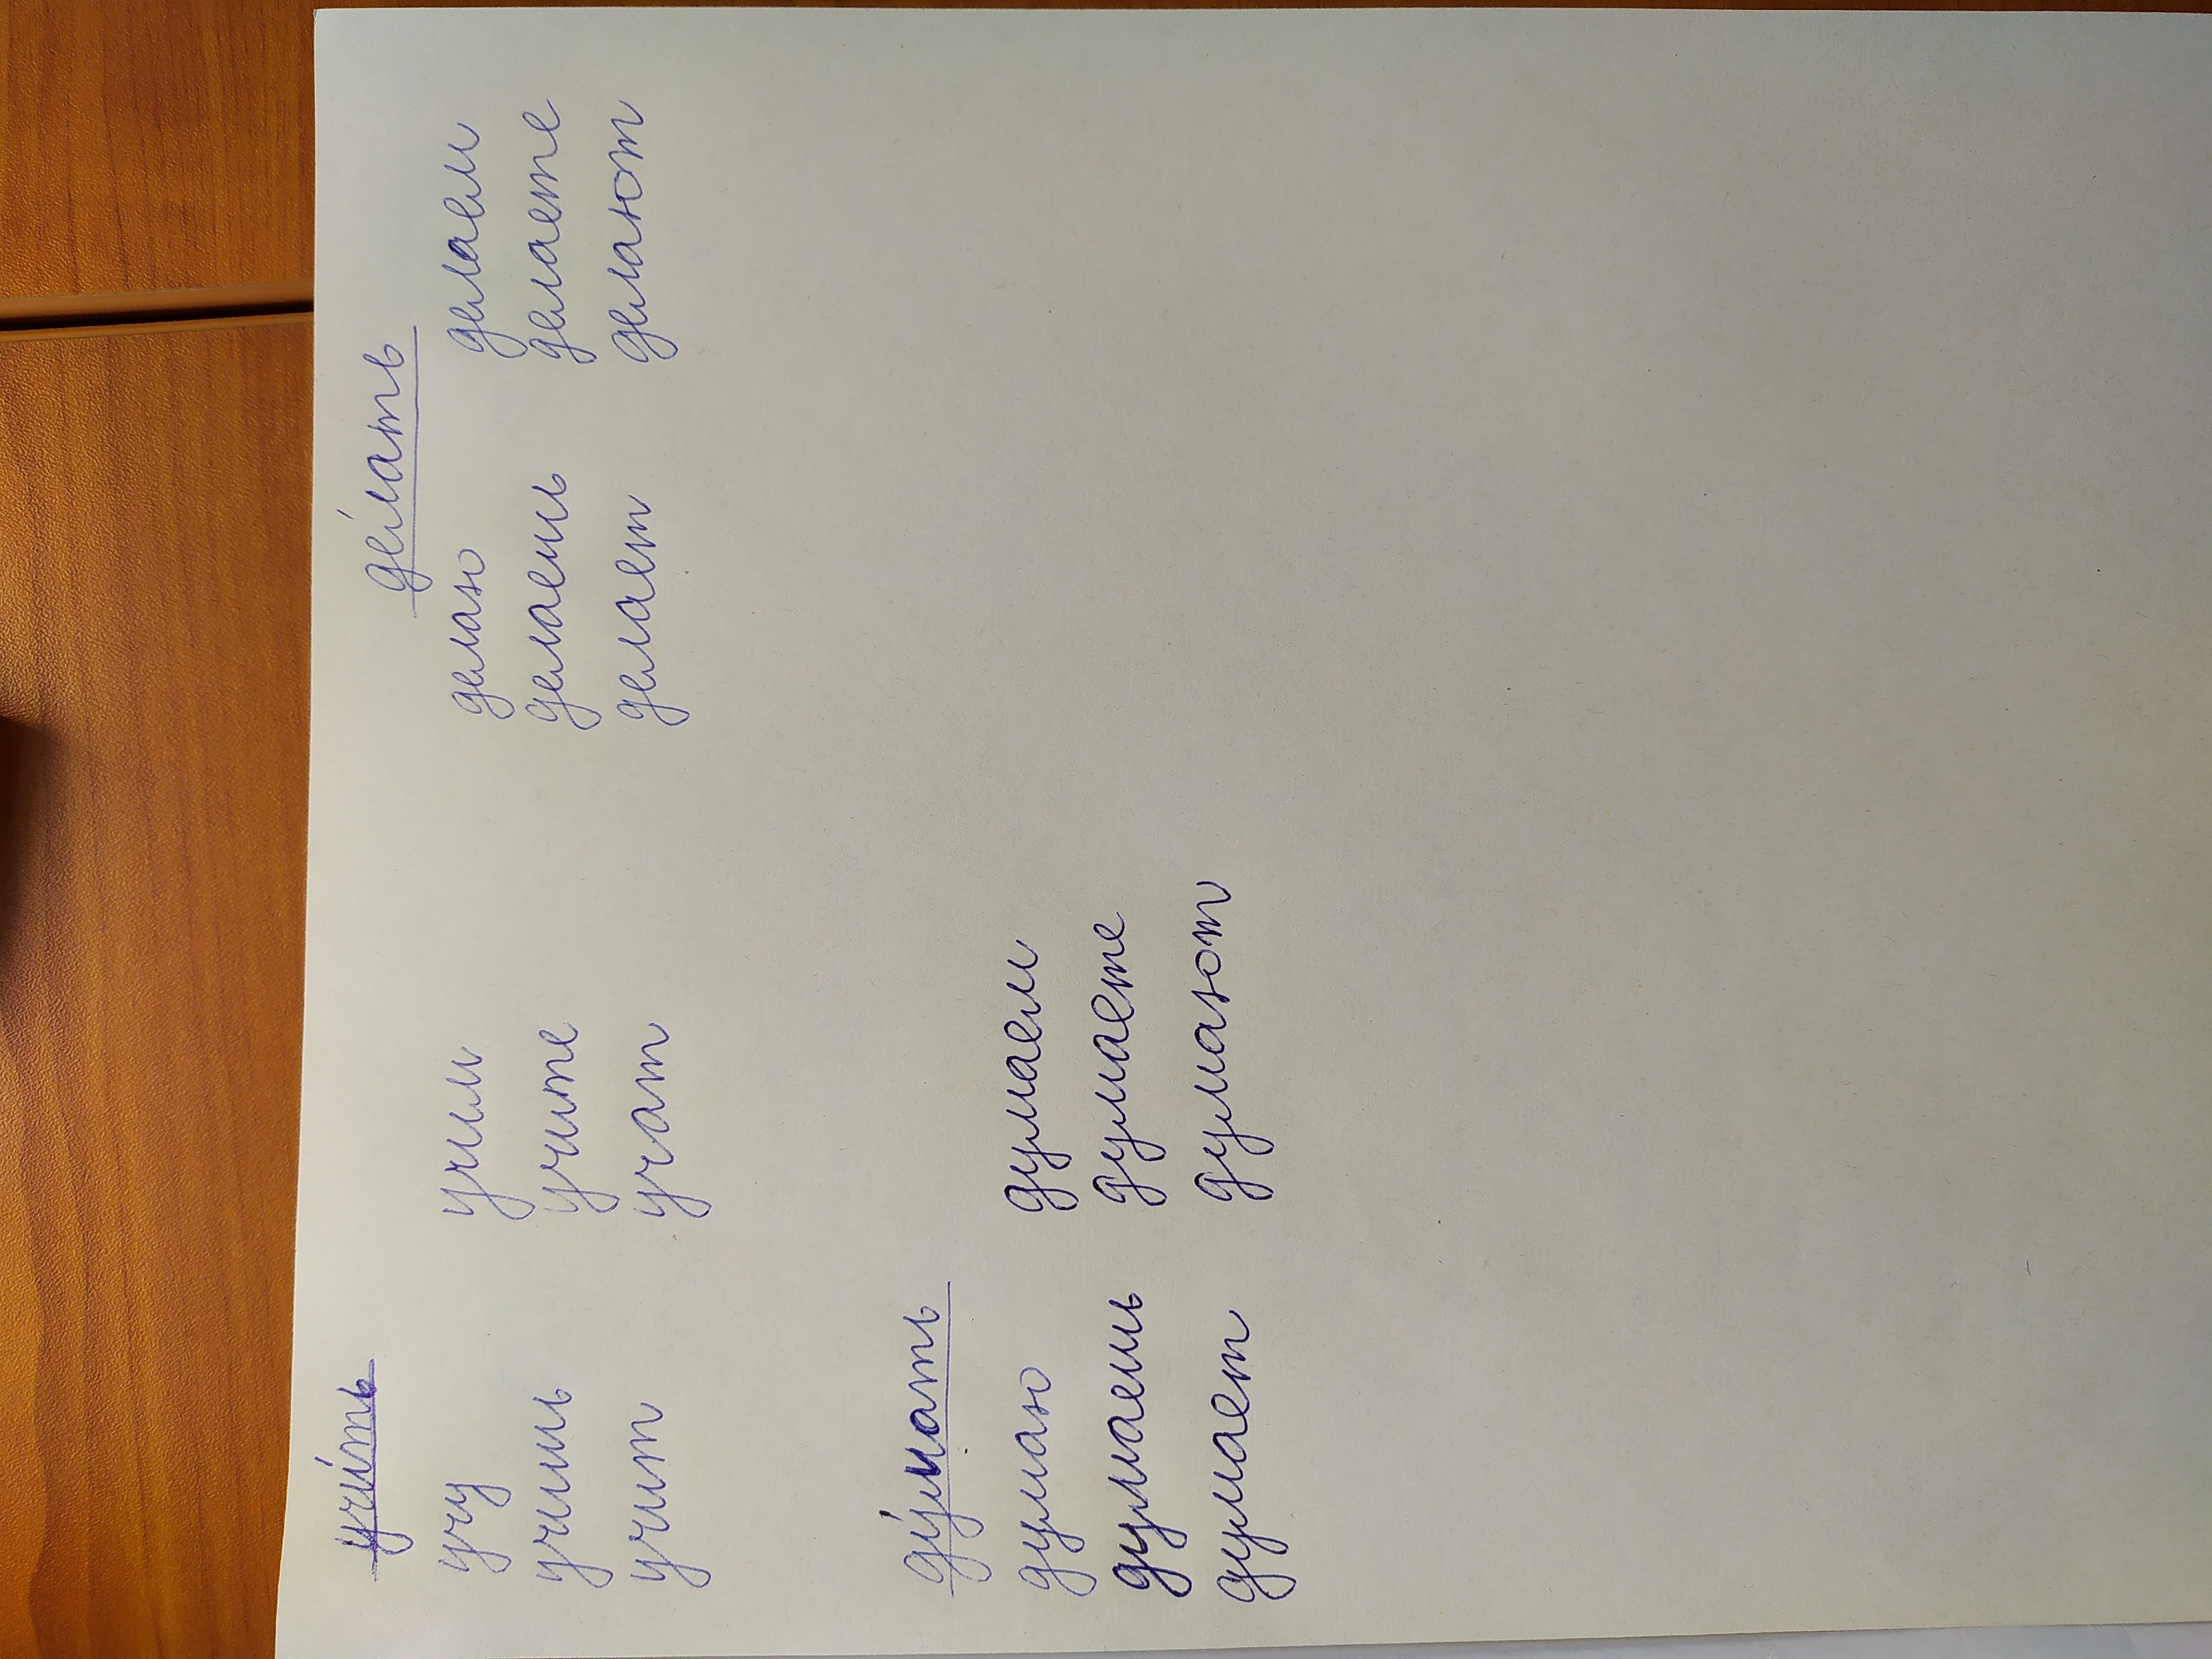 учи́ть
учу учим
учишь учите
учит учат
де́лать
делаю делаем
делаешь делаете
делает делают
ду́мать
думаю думаем
думаешь думаете
думает думают